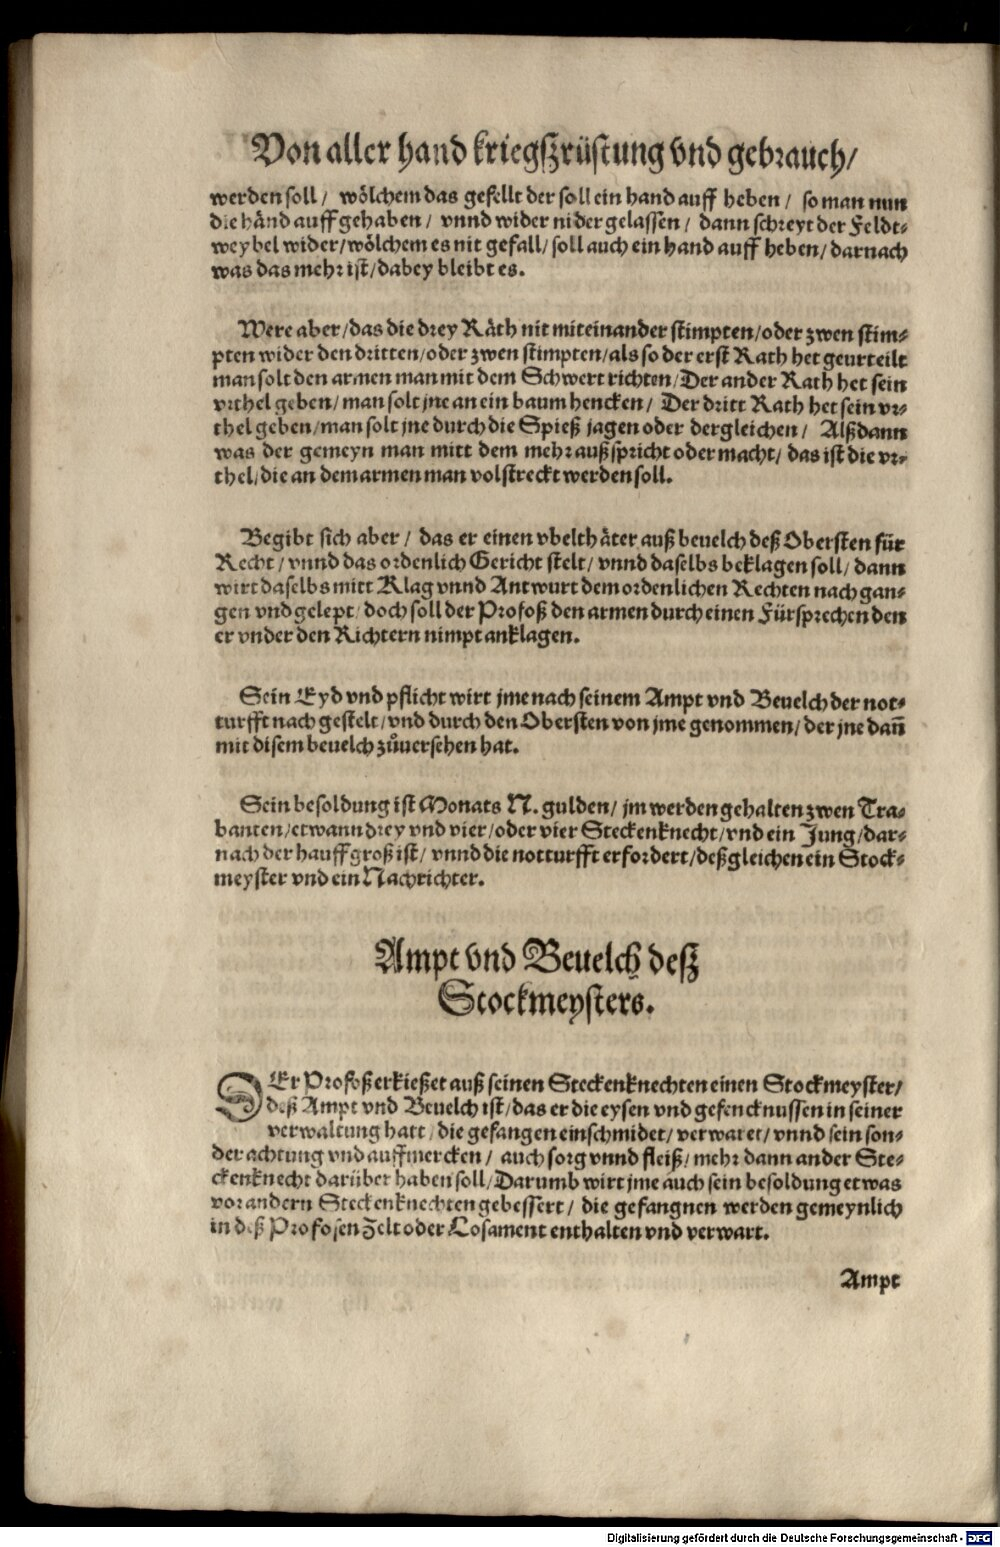 Von aller hand kriegßrüstung vnd gebrauch/
werden soll/ wölchem das gefellt der soll ein hand auff heben/ so man nun
die händ auffgehaben/ vnnd wider nider gelassen/ dann schreyt der Feldt-
weybel wider/ wölchem es nit gefall/ soll auch ein hand auff heben/ darnach
was das mehr ist/ dabey bleibt es.
Were aber/ das die drey Räth nit miteinander stimpten/ oder zwen stim-
pten wider den dritten/ oder zwen stimpten/ als so der erst Rath het geurteilt
man solt den armen man mit dem Schwert richten/ Der ander Rath het sein
vrthel geben/ man solt jne an ein baum hencken/ Der dritt Rath het sein vr-
thel geben/ man solt jne durch die Spieß jagen oder dergleichen/ Alßdann
was der gemeyn man mitt dem mehr außspricht oder macht/ das ist die vr-
thel/ die an dem armen man volstreckt werden soll.
Begibt sich aber/ das er einen vbelthäter auß beuelch deß Obersten für
Recht/ vnnd das ordenlich Gericht stelt/ vnnd daselbs beklagen soll/ dann
wirt daselbs mitt Klag vnnd Antwurt dem ordenlichen Rechten nach gan-
gen vnd gelept/ doch soll der Profoß den armen durch einen Fürsprechen den
er vnder den Richtern nimpt anklagen.
Sein Eyd vnd pflicht wirt jme nach seinem Ampt vnd Beuelch der not-
turfft nach gestelt/ vnd durch den Obersten von jme genommen/ der jne dañ
mit disem beuelch zůuersehen hat.
Sein besoldung ist Monats N. gulden/ jm werden gehalten zwen Tra-
banten/ etwann drey vnd vier/ oder vier Steckenknecht/ vnd ein Jung/ dar-
nach der hauff groß ist/ vnnd die notturfft erfordert/ deßgleichen ein Stock-
meyster vnd ein Nachrichter.
Ampt vnd Beuelch deß
Stockmeysters.
DEr Profoß erkießet auß seinen Steckenknechten einen Stockmeyster/
deß Ampt vnd Beuelch ist/ das er die eysen vnd gefencknussen in seiner
verwaltung hatt/ die gefangen einschmidet/ verwaret/ vnnd sein son-
der achtung vnd auffmercken/ auch sorg vnnd fleiß/ mehr dann ander Ste-
ckenknecht darüber haben soll/ Darumb wirt jme auch sein besoldung etwas
vor andern Steckenknechten gebessert/ die gefangnen werden gemeynlich
in deß Profosen Zelt oder Losament enthalten vnd verwart.
Ampt
Digitalisierung gefördert durch die Deutsche Forschungsgemeinschaft - DFG